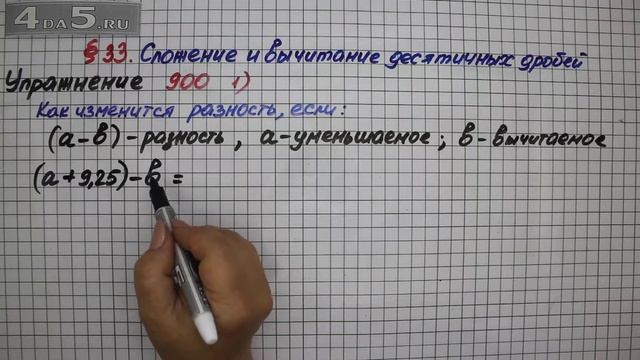 4DA5.RU
§ 33. Сложение и вычитание десятичных дробей
Упражнение 900 1)
Как изменится разность, если:
(а-в)-разность, а-уменьшаемое; в-вычитаемое
(а+9,25)-в=